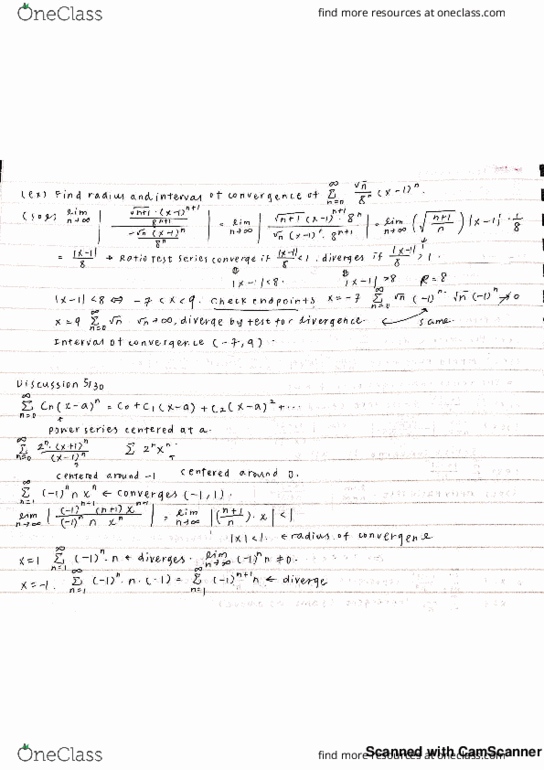 OneClass
find more resources at oneclass.com
(ex) Find radius and interval of convergence of ∞ Σ n=0 √n/8ⁿ (x-1)ⁿ.
(sol) lim n→∞ | (√n+1 · (x-1)ⁿ⁺¹ / 8ⁿ⁺¹) / (√n (x-1)ⁿ / 8ⁿ) | = lim n→∞ | √n+1 (x-1)ⁿ⁺¹ 8ⁿ / √n (x-1)ⁿ · 8ⁿ⁺¹ | = lim n→∞ (√(n+1)/n) |x-1| · 1/8
= |x-1|/8 → Ratio test series converge if |x-1|/8 < 1, diverges if |x-1|/8 > 1.
|x-1| < 8. |x-1| > 8 R = 8
|x-1| < 8 ⇔ -7 < x < 9. Check endpoints x = -7 ∞ Σ n=0 √n (-1)ⁿ. √n (-1)ⁿ ↛ 0
x = 9 ∞ Σ n=0 √n √n → ∞, diverge by test for divergence same.
Interval of convergence (-7, 9).
Discussion 5/30
∞ Σ n=0 Cn(x-a)ⁿ = C0 + C1(x-a) + C2(x-a)² + ...
power series centered at a.
∞ Σ n=0 2ⁿ·(x+1)ⁿ / (x-1)ⁿ Σ 2ⁿxⁿ
centered around -1 centered around 0.
∞ Σ n=1 (-1)ⁿ n xⁿ ← converges (-1, 1).
lim n→∞ | (-1)ⁿ⁺¹ (n+1) xⁿ⁺¹ / (-1)ⁿ n xⁿ | = lim n→∞ | (n+1/n) · x | < 1
|x| < 1. ← radius of convergence
x=1 ∞ Σ n=1 (-1)ⁿ · n ← diverges. lim n→∞ (-1)ⁿ n ≠ 0.
x=-1. ∞ Σ n=1 (-1)ⁿ · n · (-1) = ∞ Σ n=1 (-1)ⁿ⁺¹ n ← diverge
Scanned with CamScanner
OneClass
find more resources at oneclass.com